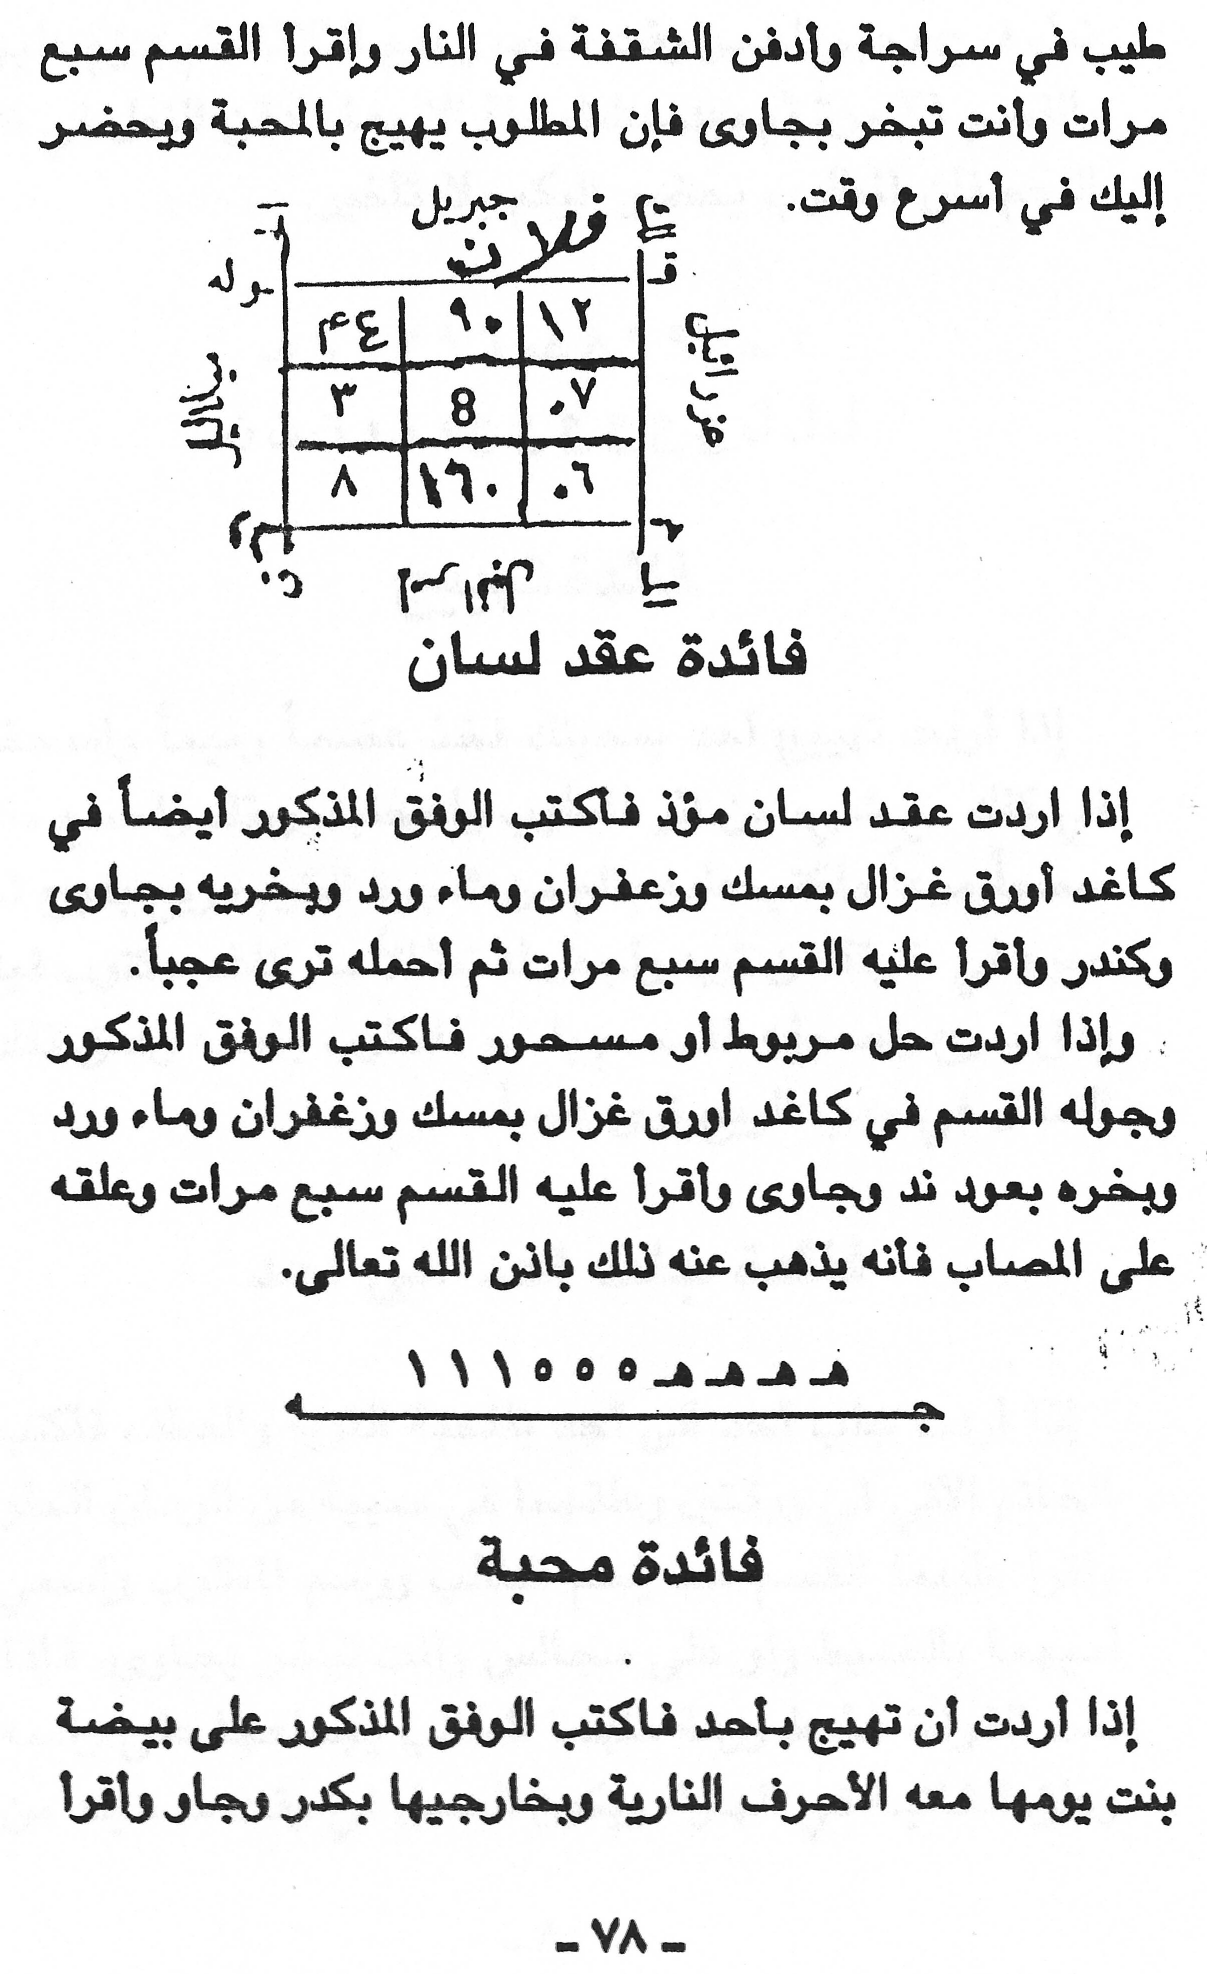 طيب في سراجة وأدفن الشقفة في النار وإقرأ القسم سبع
مرات وأنت تبخر بجاوى فإن المطلوب يهيج بالمحبة ويحضر
إليك في أسرع وقت.
جبريل
فلان
ق
وله
٤٤ ٩٠ ١٢
٣ 8 ٠٧
٨ ١٦٠ ٠٦
فائدة عقد لسان
إذا اردت عقد لسان مؤذ فأكتب الوفق المذكور أيضاً في
كاغد أورق غزال بمسك وزعفران وماء ورد وبخريه بجاوى
وكندر وأقرأ عليه القسم سبع مرات ثم أحمله ترى عجباً.
وإذا اردت حل مربوط أو مسحور فاكتب الوفق المذكور
وجوله القسم في كاغد اورق غزال بمسك وزغفران وماء ورد
وبخره بعود ند وجاوى وأقرأ عليه القسم سبع مرات وعلقه
على المصاب فأنه يذهب عنه ذلك باذن الله تعالى.
هـ هـ هـ هـ ٥ ٥ ٥ ١ ١ ١
جـــه
فائدة محبة
إذا أردت أن تهيج بأحد فاكتب الوفق المذكور على بيضة
بنت يومها معه الأحرف النارية وبخارجيها بكدر وجاو وأقرأ
- ٧٨ -